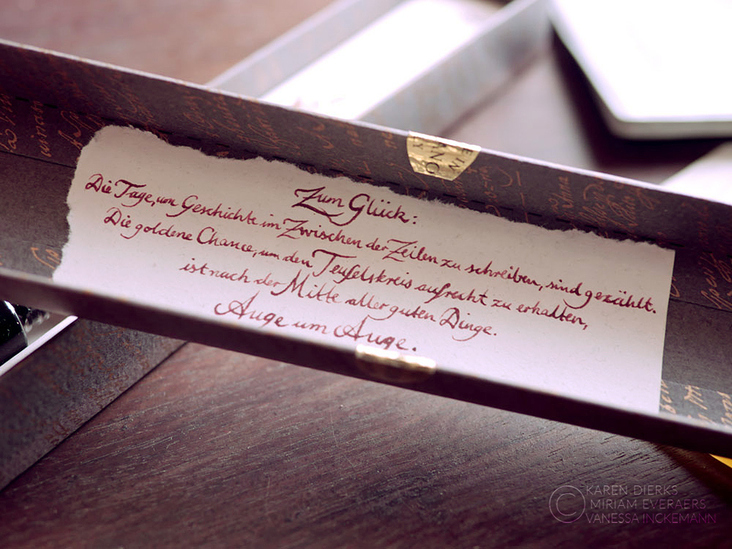 Zum Glück:
Die Tage, um Geschichte im Zwischen der Zeilen zu schreiben, sind gezählt.
Die goldene Chance, um den Teufelskreis aufrecht zu erhalten,
ist nach der Mitte aller guten Dinge.
Auge um Auge.
© KAREN DIERKS
MIRIAM EVERAERS
VANESSA INGKEMANN